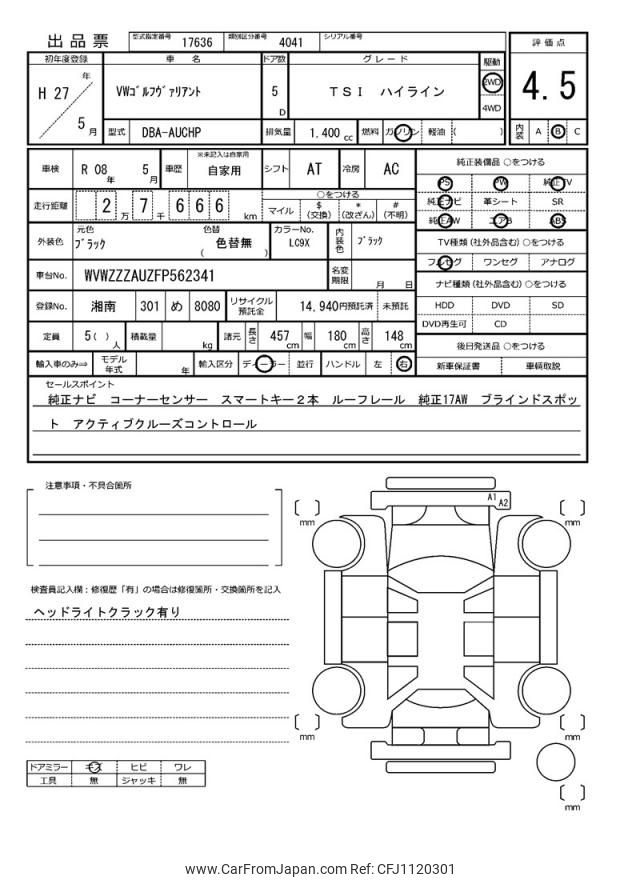 出品票 型式指定番号 17636 類別区分番号 4041 シリアル番号
評価点
4.5
内装 A B C
初年度登録 車名 ドア数 グレード 駆動
H 27 年 5 月 VWｺﾞﾙﾌｳﾞｧﾘｱﾝﾄ 5 D TSI ハイライン 2WD 4WD
型式 DBA-AUCHP 排気量 1,400 cc 燃料 ガソリン 軽油 ( )
車検 R 08 年 5 月 車歴 ※未記入は自家用 自家用 シフト AT 冷房 AC
走行距離 2 万 7 千 6 6 6 km ○をつける
マイル $ (交換) * (改ざん) # (不明)
外装色 元色 ﾌﾞﾗｯｸ 色替 ( 色替無 ) カラーNo. LC9X 内装色 ﾌﾞﾗｯｸ
車台No. WVWZZZAUZFP562341 名変期限 月 日
登録No. 湘南 301 め 8080 リサイクル預託金 14,940円預託済 未預託
定員 5( ) 人 積載量 kg 諸元 長さ 457 cm 幅 180 cm 高さ 148 cm
輸入車のみ⇒ モデル年式 年 輸入区分 ディーラー 並行 ハンドル 左 右
純正装備品 ○をつける
PS PW 純正TV
純正ナビ 革シート SR
純正AW エアB ABS
TV種類 (社外品含む) ○をつける
フルセグ ワンセグ アナログ
ナビ種類 (社外品含む) ○をつける
HDD DVD SD
DVD再生可 CD
後日発送品 ○をつける
新車保証書 車輌取説
セールスポイント
純正ナビ コーナーセンサー スマートキー２本 ルーフレール 純正17AW ブラインドスポッ
ト アクティブクルーズコントロール
注意事項・不具合箇所
検査員記入欄：修復歴「有」の場合は修復箇所・交換箇所を記入
ヘッドライトクラック有り
A1 A2
mm mm
mm mm
mm
ドアミラー キズ ヒビ ワレ
工具 無 ジャッキ 無
www.CarFromJapan.com Ref: CFJ1120301